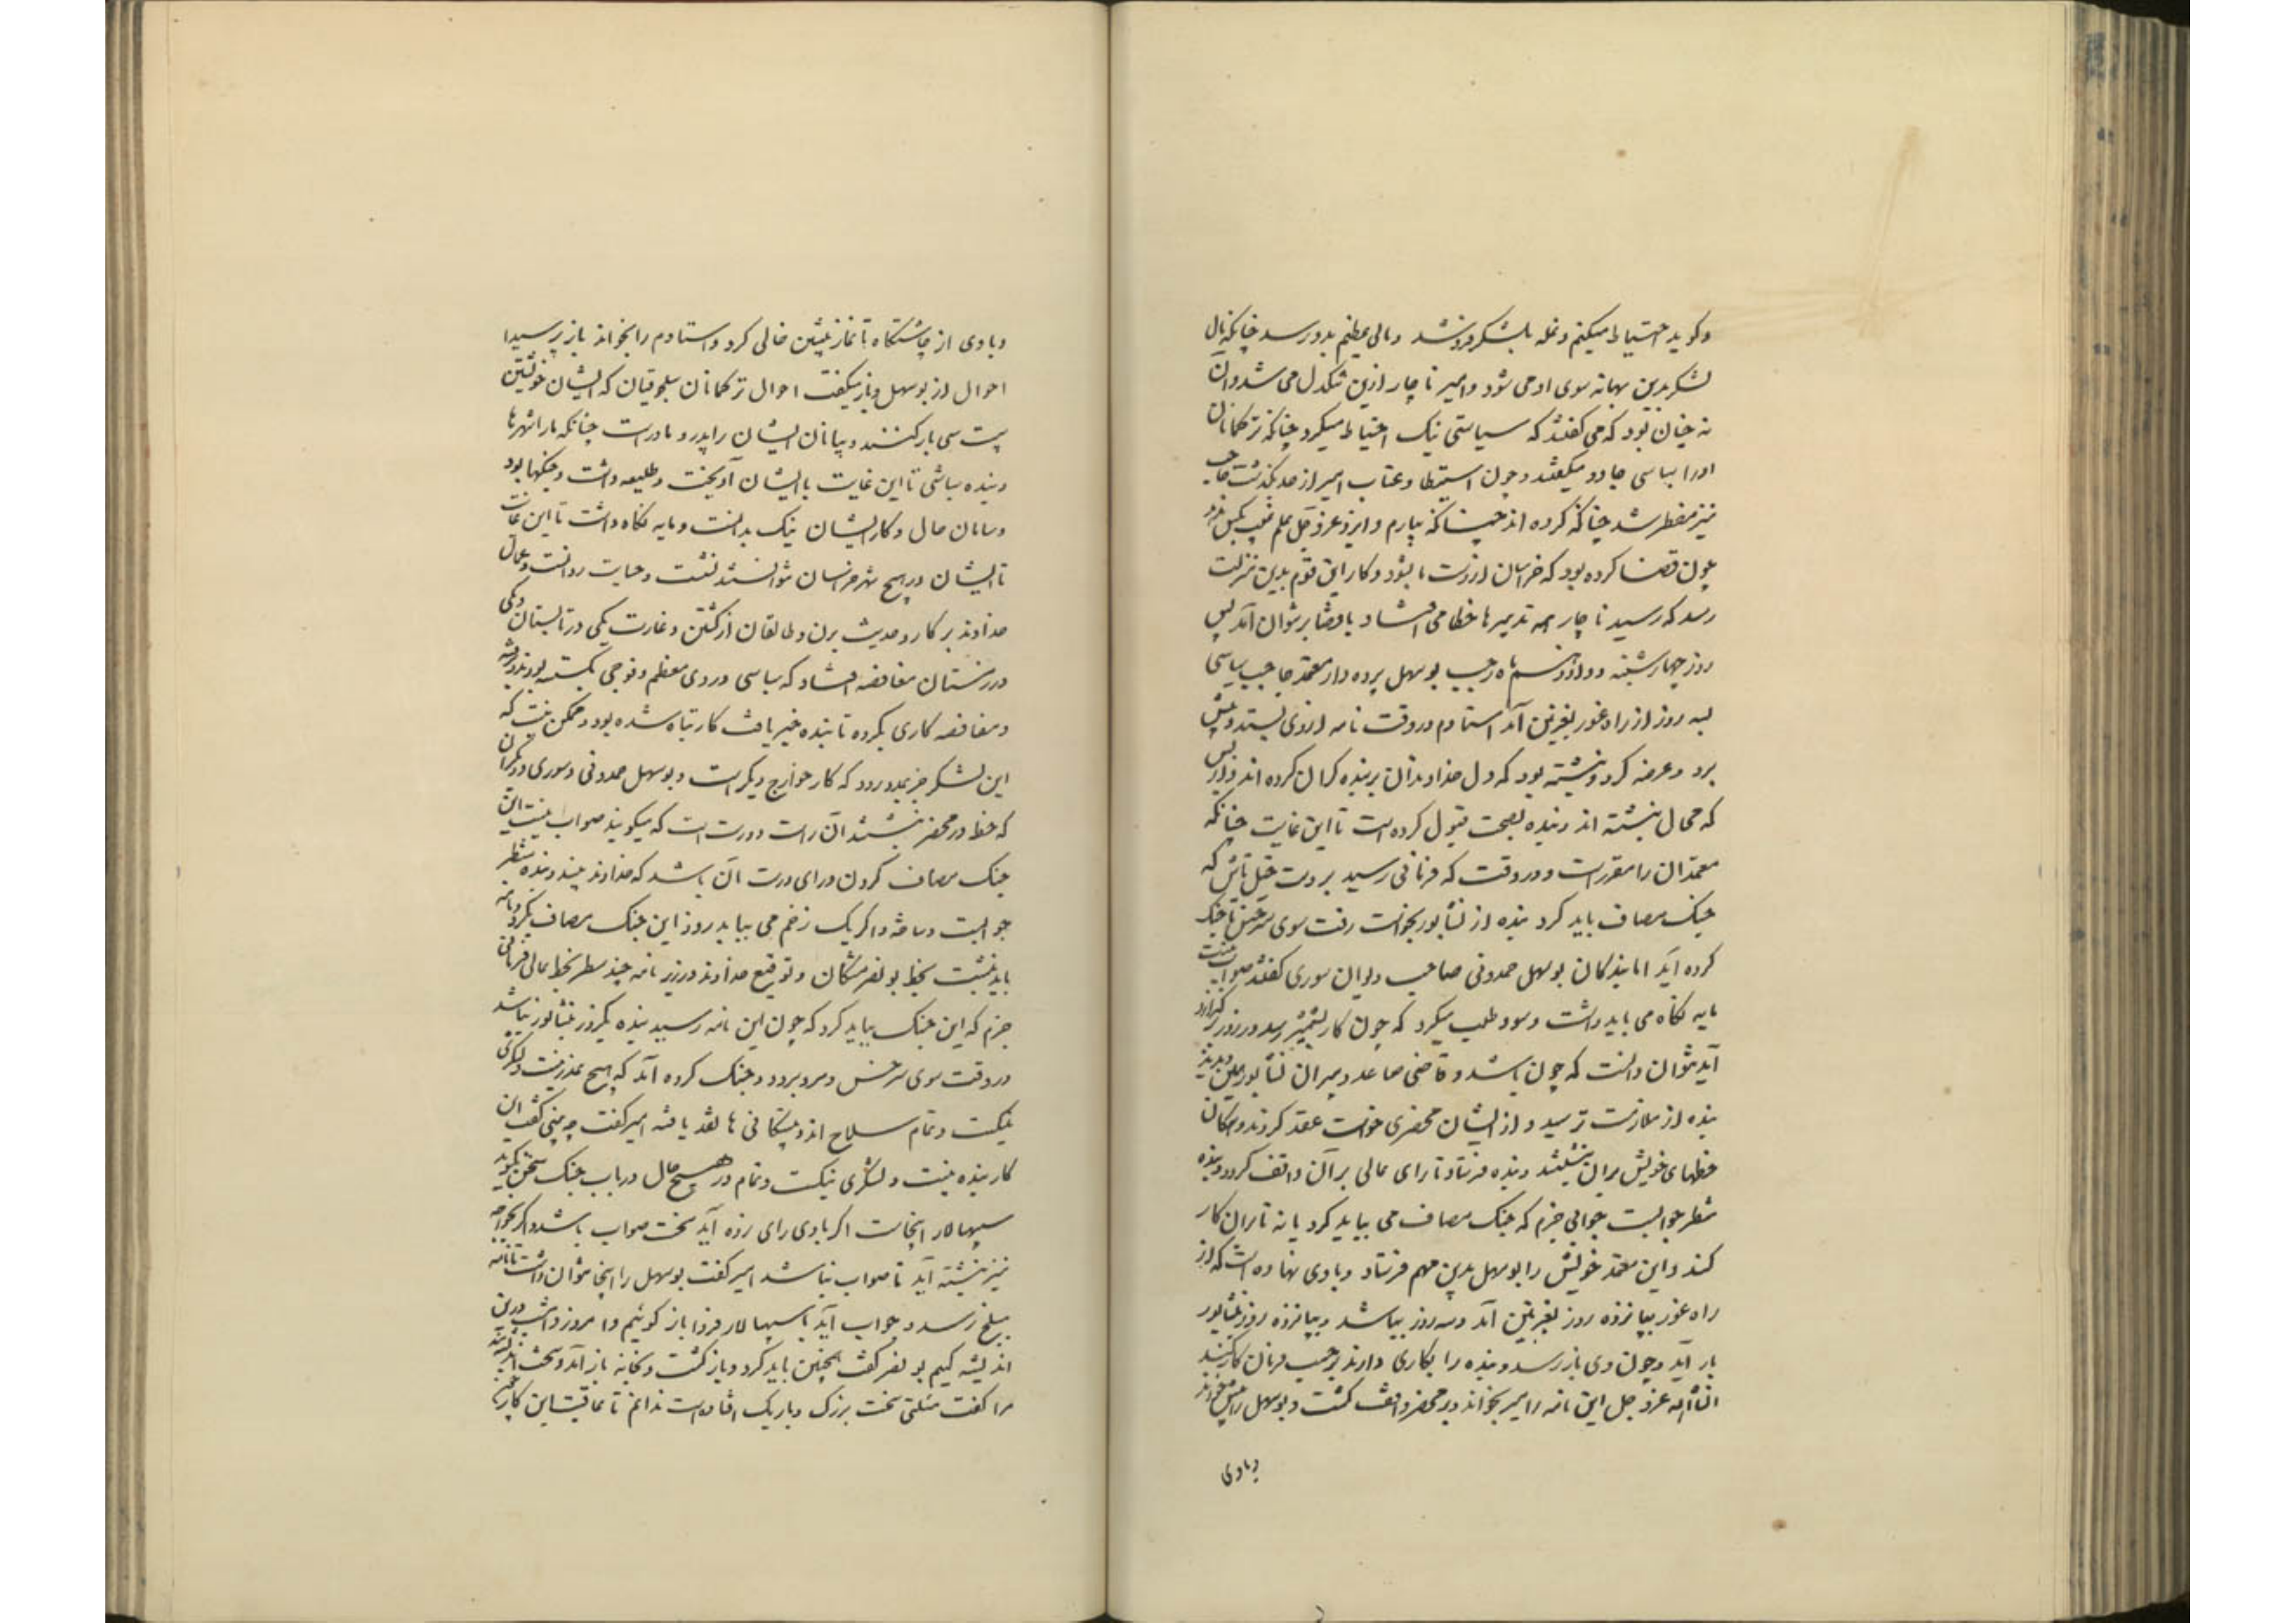 و گوید احتیاط میکنم و غله بلشکر فروشد و مالی عظیم بدو رسد چنانکه مال
لشکر بدین بهانه سوی او می شود و امیر ناچار ازین تنگدل می شد و آن
نه چنان بود که می گفتند که سیاستی نیک احتیاط میکرد چنانکه ترکمانان
او را سباسی جادو میگفتند و چون استبطا و عتاب امیر از حد بگذشت حاجب
نیز مضطر شد چنانکه کرده اند چنانکه بیارم و ایزد عز و جل علم غیب بکس ندهد
چون قضا کرده بود که خراسان از دست ما بشود و کار این قوم بدین منزلت
رسد که رسید ناچار همه تدبیرها خطا می افتاد با قضا بر نتوان آمد پس
روز چهارشنبه دوازدهم ماه رجب بوسهل پرده دار معتمد حاجب سباسی
بسه روز از راه غور بغزنین آمد استادم در وقت نامه از وی بستد و پیش
برد و عرضه کرد و نبشته بود که دل خداوندان بر بنده گران کرده اند از بس
که محال نبشته اند و بنده نصیحت قبول کرده است تا این غایت چنانکه
معتمدان را مقررست و در وقت که فرمانی رسید بر دست خیل تاش که
جنگ مصاف باید کرد بنده از نشابور بخواست رفت سوی سرخس تا جنگ
کرده آید اما بندگان بوسهل حمدونی صاحب دیوان سوری گفتند صواب نیست
مایه نگاه می باید داشت و سود طلب میکرد که چون کار بشمشیر رسد و روز بر گذارد
آید نتوان دانست که چون باشد و قاضی صاعد و پیران نشابور همین دیدند
بنده از ملامت ترسید و از ایشان محضری خواست عقد کردند و همگان
خطهای خویش بر آن نبشتند و بنده فرستاد تا رای عالی بر آن واقف گردد و بنده
منتظر جوابست جوابی جزم که جنگ مصاف می بباید کرد یا نه تا بر آن کار
کند و این معتمد خویش را بوسهل بدین مهم فرستاد و با وی نهاده است که از
راه غور بپانزده روز بغزنین آمد و سه روز بباشد و بپانزده روز بنشابور
باز آید و چون وی باز رسد و بنده را بکاری دارند بر حسب فرمان کار کنند
انشاالله عز و جل این نامه را امیر بخواند و بر محضر واقف گشت و بوسهل را پیش خواند
و با وی
و با وی از چاشتگاه تا نماز پیشین خالی کرد و استادم را بخواند باز پرسید
احوال از بوسهل و باز میگفت احوال ترکمانان سلجوقیان که ایشان خویشتن
بیست سی پاره کنند و بیابان ایشان را پدر و مادرست چنانکه ما را شهرها
و بنده سباشی تا این غایت با ایشان آویخت و طلیعه داشت و جنگها بود
و سامان حال و کار ایشان نیک بدانست و مایه نگاه داشت تا این غایت
تا ایشان در هیچ شهر خراسان نتوانستند نشست و جبایت روانست و عمال
خداوند بر کار و حدیث برن و طالقان از کشتن و غارت یکی در تابستان و یکی
در زمستان مغافصه افتاد که سباسی در روی معظم و فوجی بگسسته بودند و برفته
و مغافصه کاری بکرده تا بنده خبر یافت کار تباه شده بود و ممکن نیست که
این لشکر جز بمدد رود که کار خوارج دیگرست و بوسهل حمدونی و سوری و دیگران
که خط در محضر نبشتند آن راست و درست است که میگویند صواب نیست این
جنگ مصاف کردن و رای درست آن باشد که خداوند بیند و بنده منتظر
جوابست و ساخته و اگر یک زخم می بباید روز این جنگ مصاف بکرد و نامه
باید نبشت بخط بونصر مشکان و توقیع خداوند و زیر نامه چند سطر بخط عالی فرمانی
جزم که این جنگ بباید کرد که چون این نامه رسید بنده یکروز بنشابور نباشد
در وقت سوی سرخس و مرو برود و جنگ کرده آید که هیچ عذر نیست و لشکری
نیکست و تمام سلاح اند و بیستگانی ها نقد یافته امیر گفت چه بینی گفت این
کار بنده نیست و لشکری نیکست و تمام در هیچ حال در باب جنگ سخن نگوید
سپهسالار اینجاست اگر با وی رای زده آید سخت صواب باشد و اگر بخواجه
نیز نبشته آید ناصواب نباشد امیر گفت بوسهل را اینجا نتوان داشت تا نامه
ببلخ رسد و جواب آید با سپهسالار فردا باز گوئیم و امروز و امشب درین
اندیشه کنیم بونصر گفت همچنین باید کرد و باز گشت و بخانه باز آمد و سخت اندیشمند
مرا گفت مسئلتی سخت بزرگ و باریک افتاده است ندانم تا عاقبت این کار